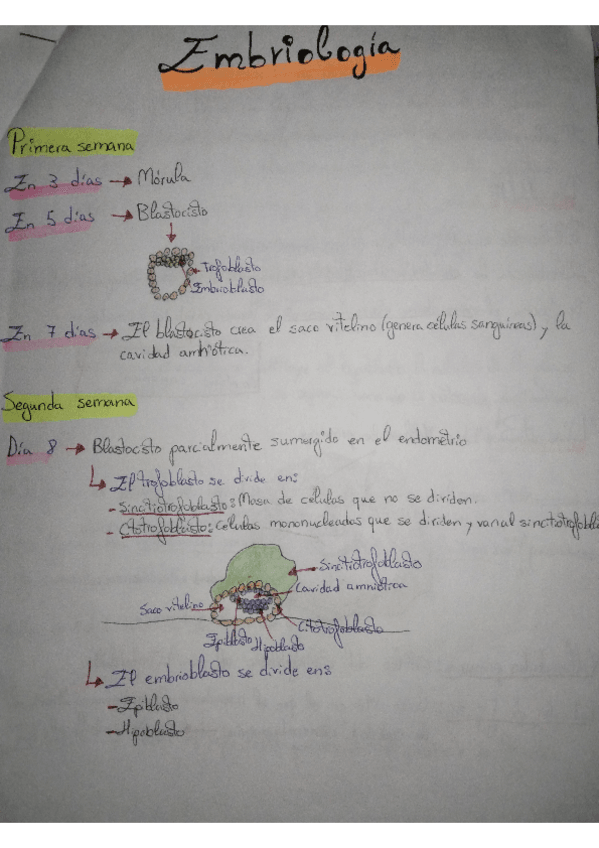 Embriología
Primera semana
En 3 días → Mórula
En 5 días → Blastocisto
Trofoblasto
Embrioblasto
En 7 días → El blastocisto crea el saco vitelino (genera células sanguíneas) y la
cavidad amniótica.
Segunda semana
Día 8 → Blastocisto parcialmente sumergido en el endometrio
El trofoblasto se divide en:
- Sincitiotrofoblasto: Masa de células que no se dividen.
- Citotrofoblasto: Células mononucleadas que se dividen y van al sincitiotrofobla
Sincitiotrofoblasto
Cavidad amniótica
Saco vitelino
Citotrofoblasto
Epiblasto Hipoblasto
El embrioblasto se divide en:
- Epiblasto
- Hipoblasto